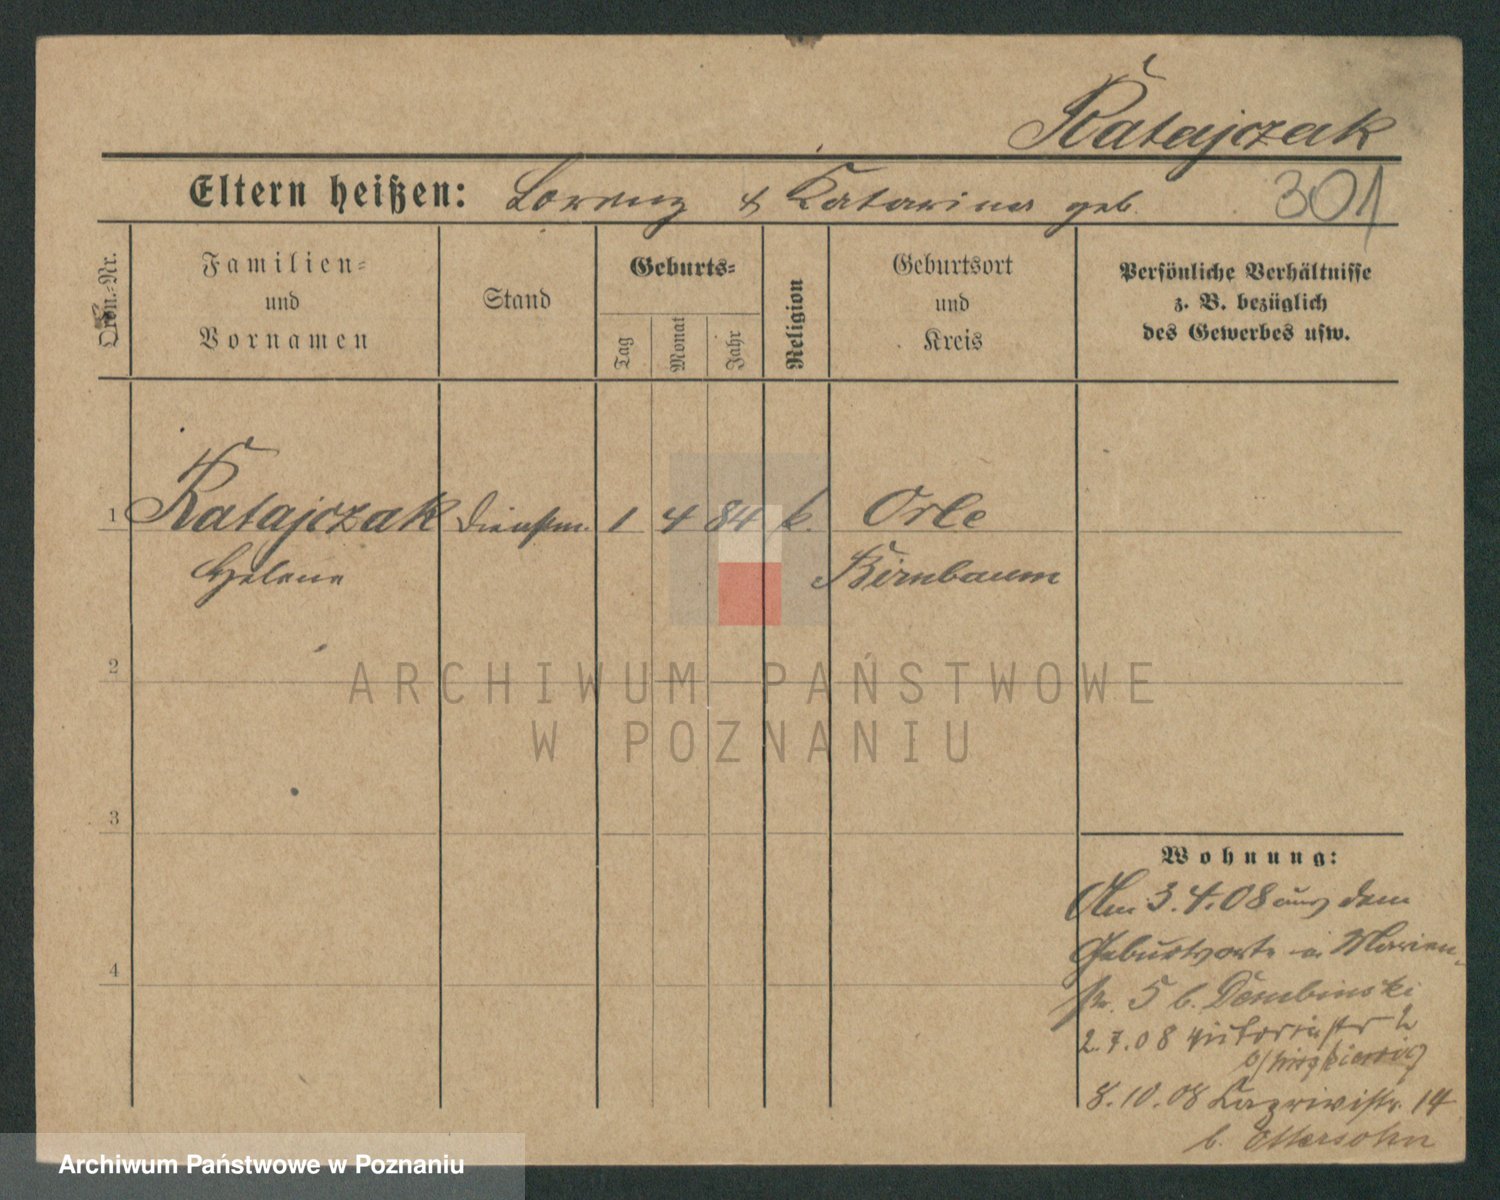 Ratajczak
Eltern heißen: Lorenz & Katarina geb.
301
Ordn.-Nr.
Familien-
und
Vornamen
Stand
Geburts-
Tag
Monat
Jahr
Religion
Geburtsort
und
Kreis
Persönliche Verhältnisse
z. B. bezüglich
des Gewerbes usw.
1 Ratajczak Dienstm. 1 4 84 k. Orle
Helene Birnbaum
2
ARCHIWUM PAŃSTWOWE
W POZNANIU
3
Wohnung:
Am 3.4.08 aus dem
Geburtsorte in Marien-
str. 5 b. Dembinski
4
2.7.08 Victoriastr 2
8.10.08 14
b. Ottersohn
Archiwum Państwowe w Poznaniu